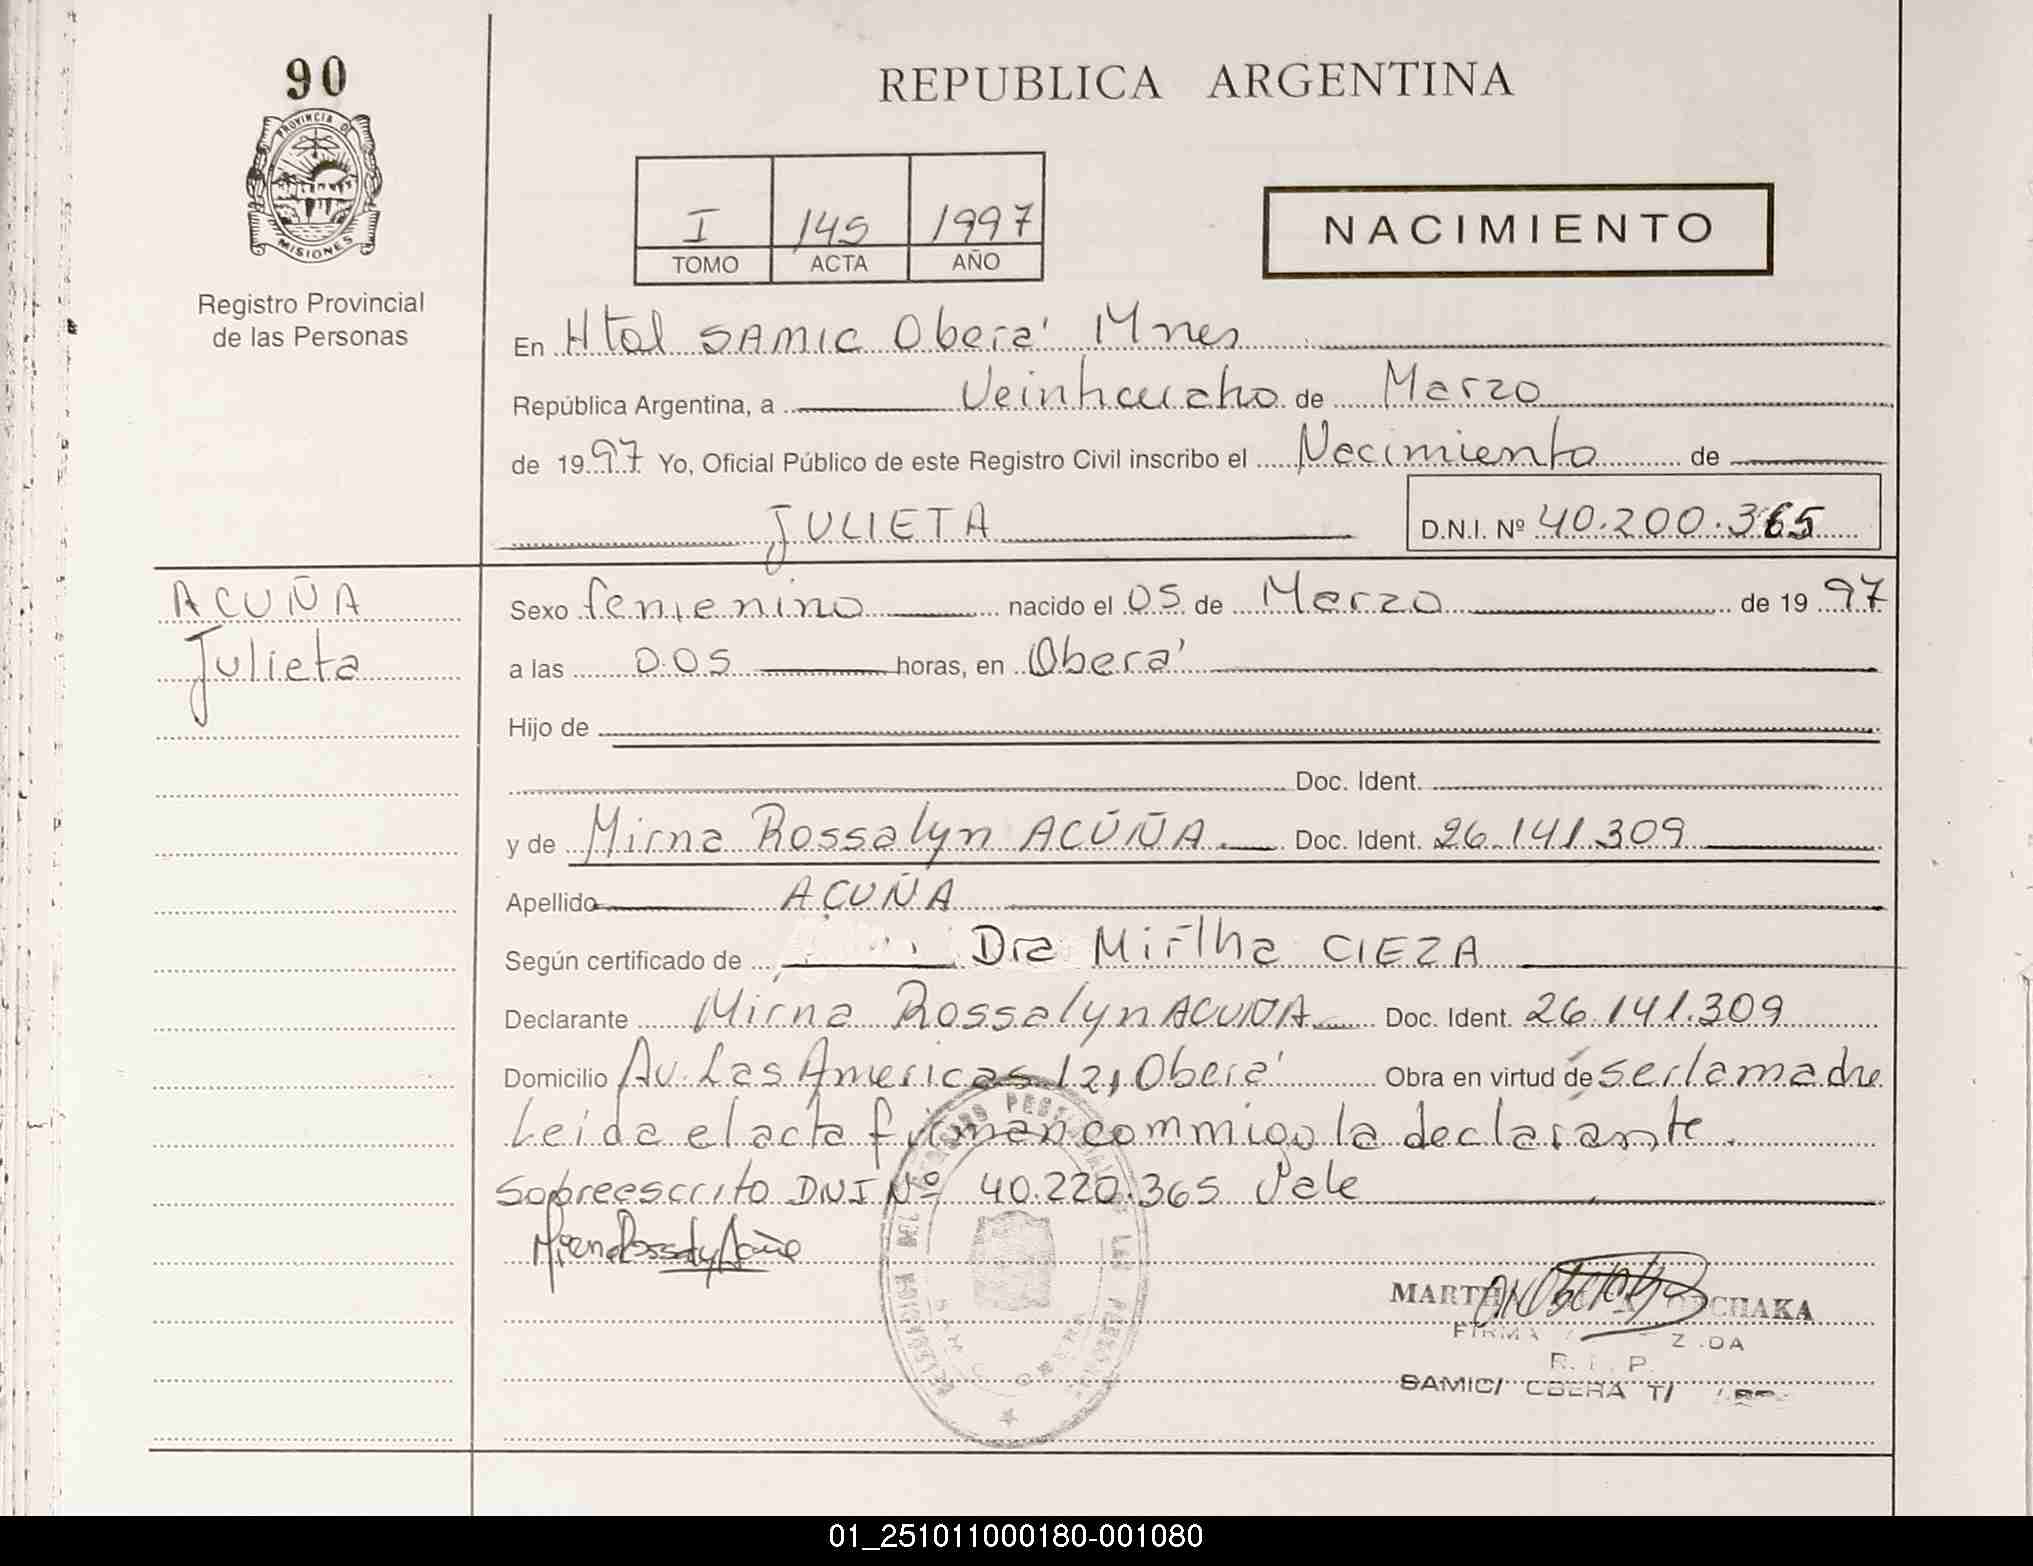 90
PROVINCIA DE
MISIONES
Registro Provincial
de las Personas
REPUBLICA ARGENTINA
I 145 1997
TOMO ACTA AÑO
NACIMIENTO
En Htal SAMIC Oberá Mnes
República Argentina, a Veinticuatro de Marzo
de 1997 Yo, Oficial Público de este Registro Civil inscribo el Nacimiento de
JULIETA D.N.I. Nº 40.200.365
ACUÑA
Julieta
Sexo femenino nacido el 05 de Marzo de 1997
a las 0.05 horas, en Oberá
Hijo de
Doc. Ident.
y de Mirna Rossalyn ACÚÑA Doc. Ident. 26.141.309
Apellido ACUÑA
Según certificado de Dra Mirtha CIEZA
Declarante Mirna Rossalyn ACUÑA Doc. Ident. 26.141.309
Domicilio Av. Las Americas 12, Oberá Obra en virtud de ser la madre
Leida el acta firman commigo la declarante.
Sobreescrito DNI Nº 40.220.365 Vale
Mirna Rossalyn Acuña
MARTHA CHAKA
FIRMA
R. P.
SAMIC OBERA
01_251011000180-001080